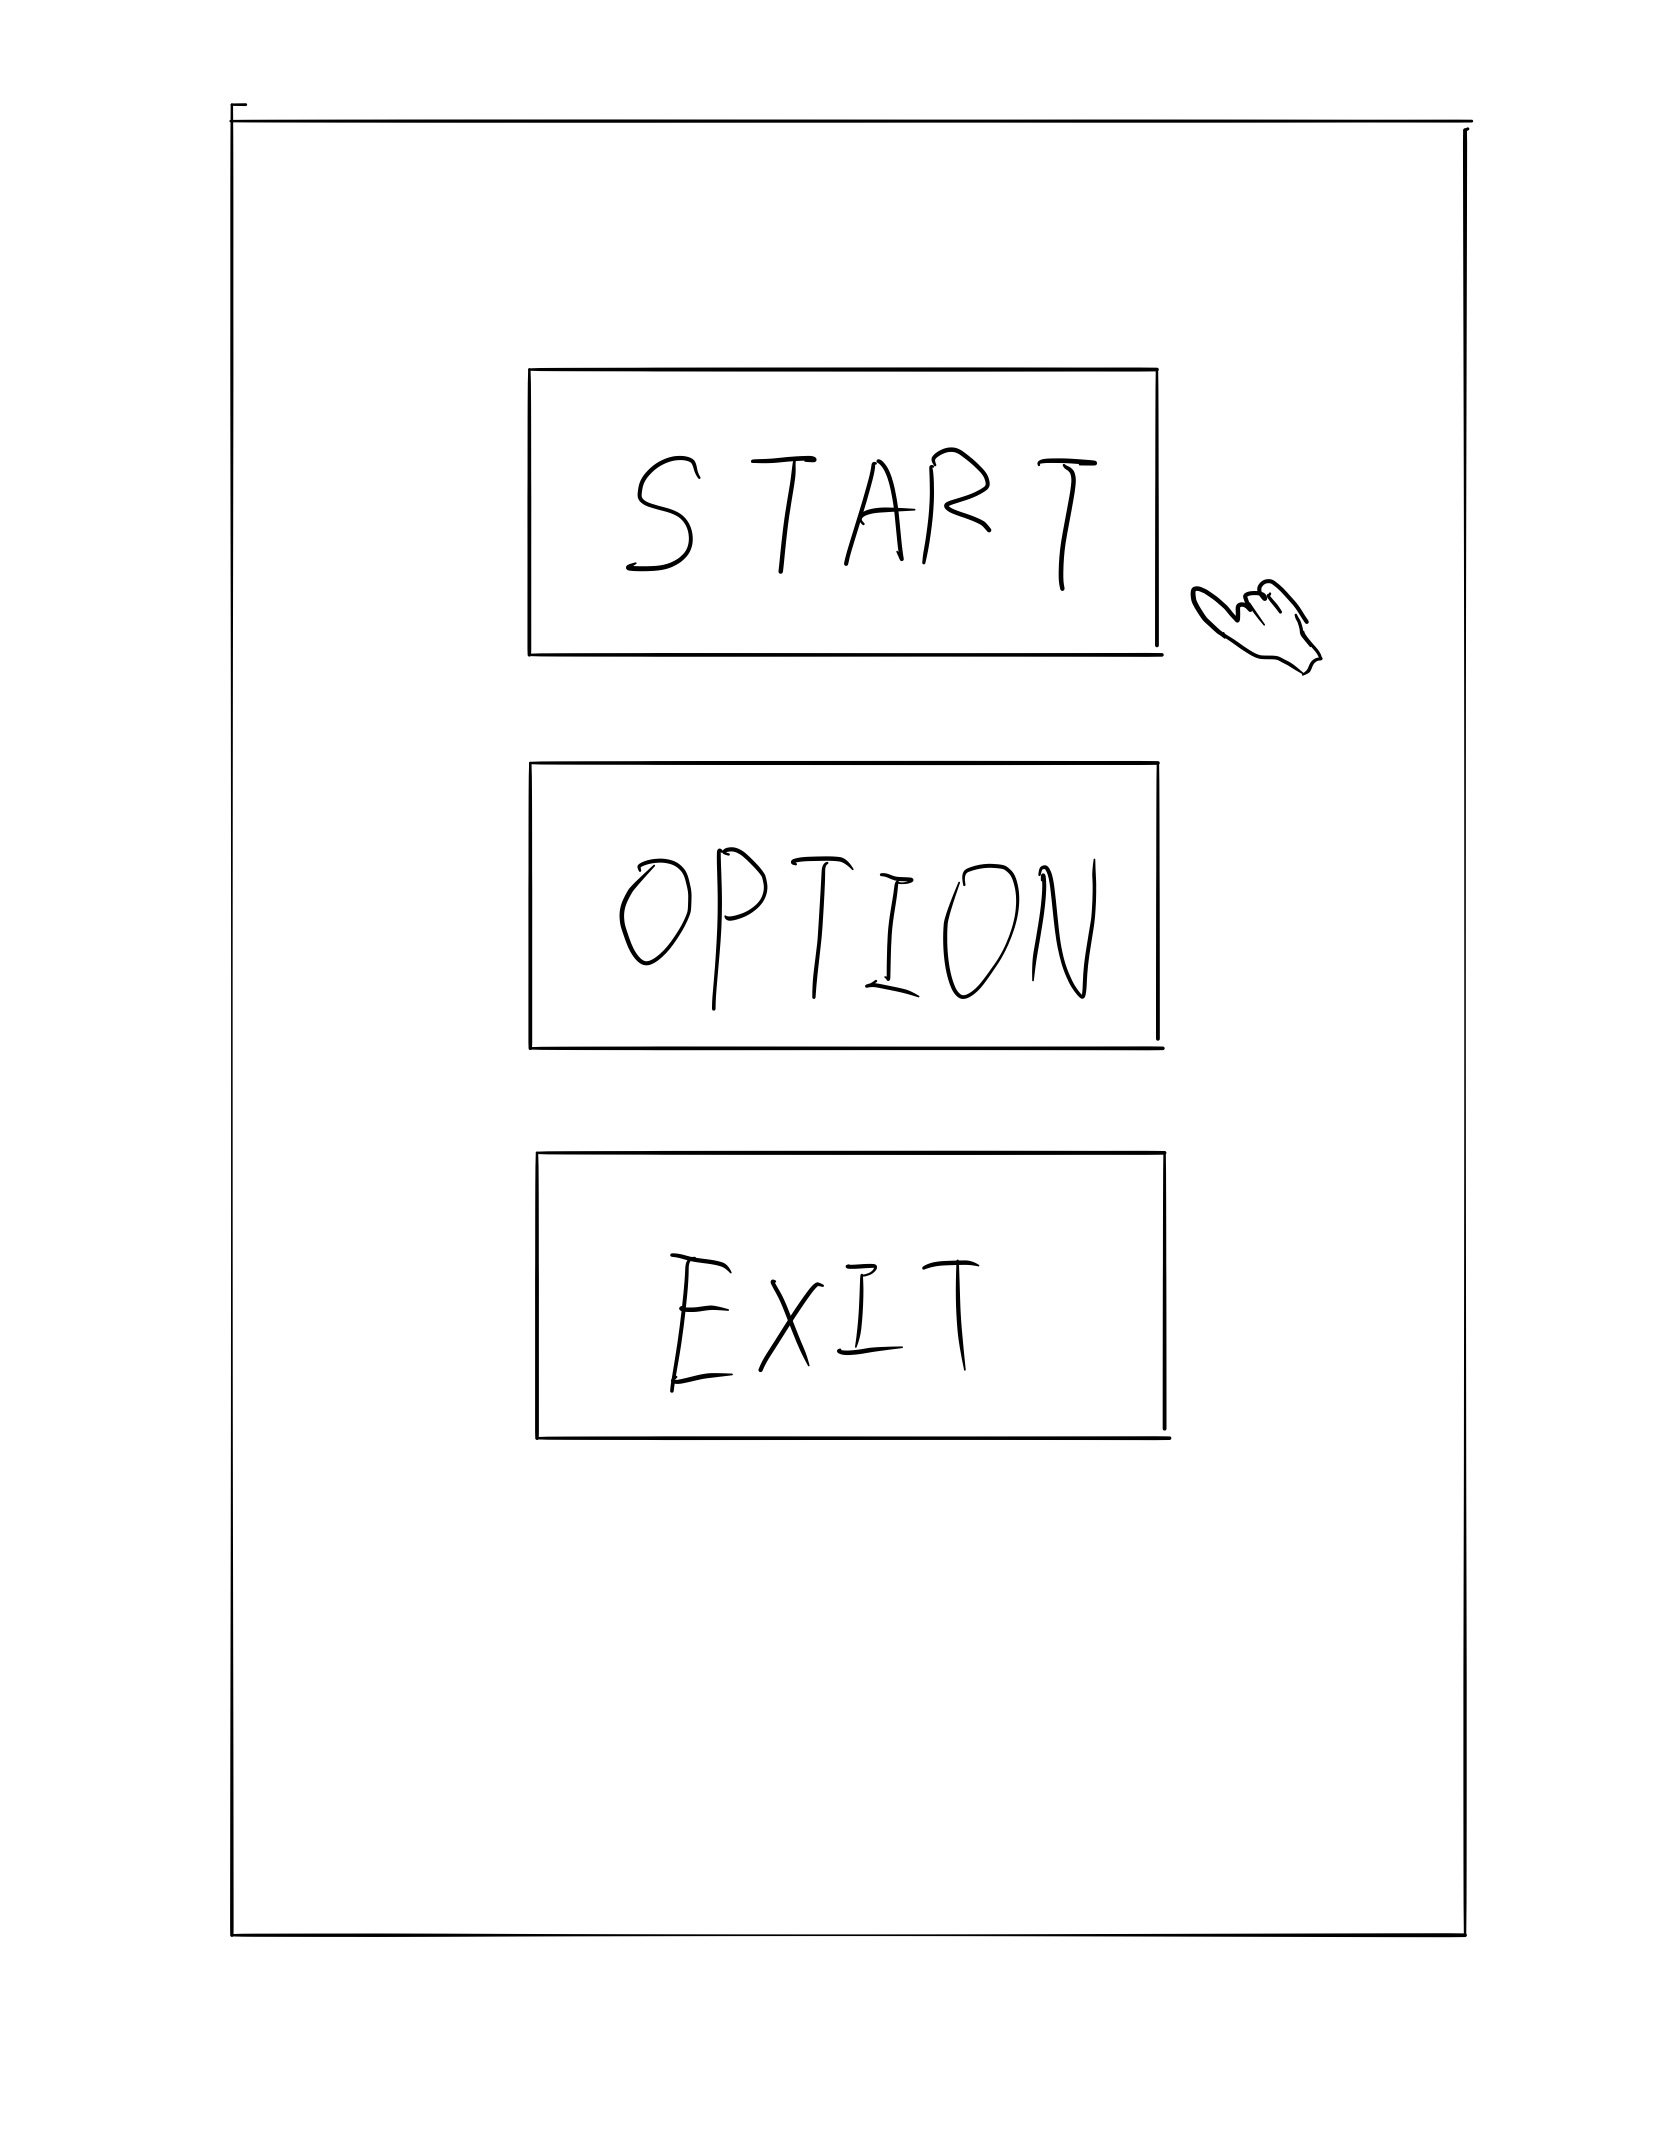 START
OPTION
EXIT